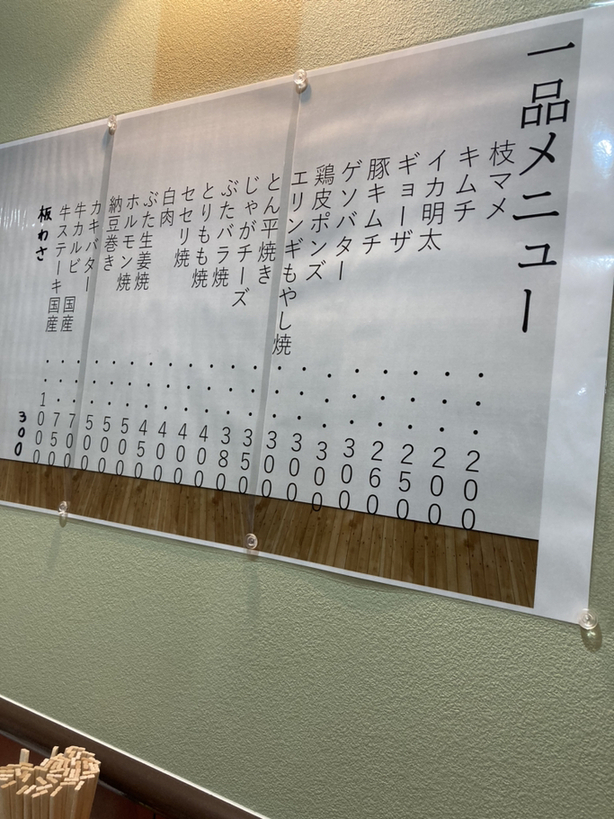 一品メニュー
枝マメ・・・200
キムチ・・・200
イカ明太・・・250
ギョーザ・・・260
豚キムチ・・・300
ゲソバター・・・300
鶏皮ポンズ・・・300
エリンギもやし焼・・・300
とん平焼き・・・350
じゃがチーズ・・・380
ぶたバラ焼・・・400
とりもも焼・・・400
セセリ焼・・・400
白肉・・・450
ぶた生姜焼・・・500
ホルモン焼・・・500
納豆巻き・・・500
カキバター・・・700
牛カルビ 国産・・・750
牛ステーキ国産・・・1000
板わさ 300